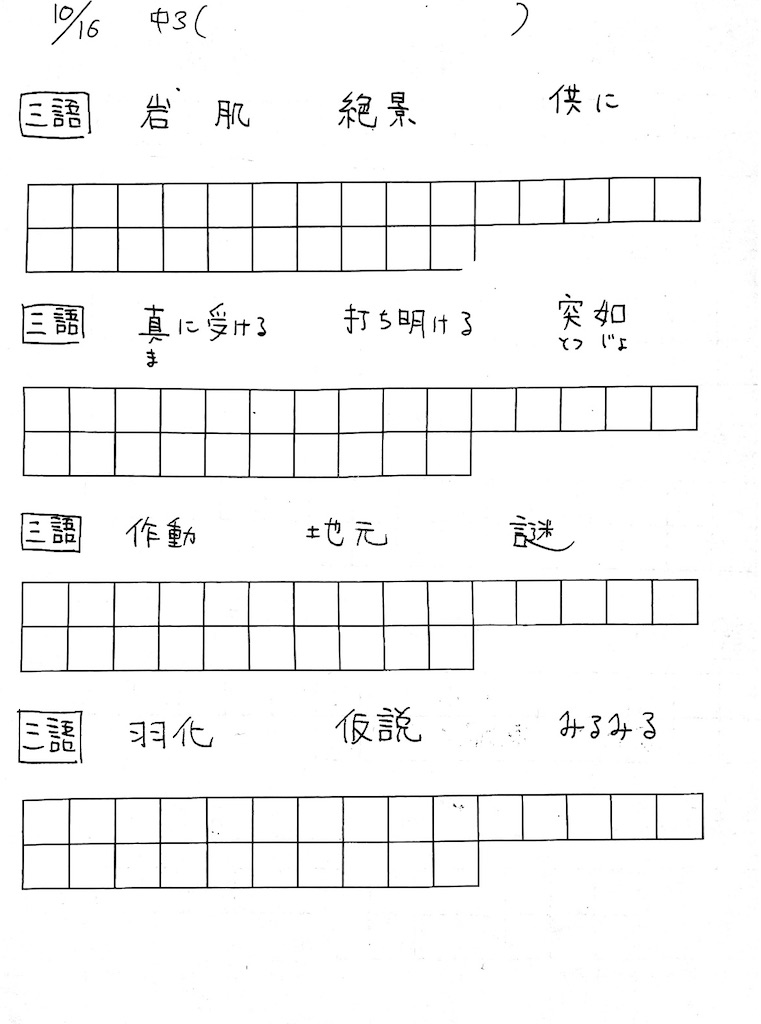 10/16 中3( )
三語 岩肌 絶景 供に
三語 真に受ける 打ち明ける 突如
ま とつじょ
三語 作動 地元 謎
三語 羽化 仮説 みるみる